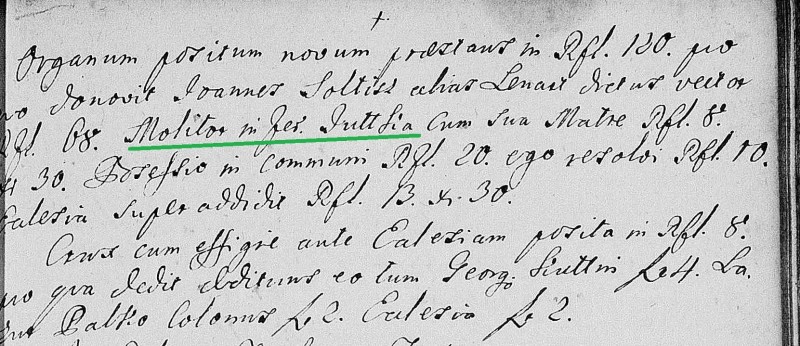 +
Organum positum novum præstans in Rfl. 120. pro
donovit Joannes Soltiss alias Lenart dictus vector
Rfl. 68. Molitor in Jes. Juttsia cum sua Matre Rfl. 8.
xr 30. Possessio in communi Rfl. 20. ego resolvi Rfl. 10.
Ecalesia super addidit Rfl. 13. xr. 30.
Crux cum effigie ante Ecalesiam posita in Rfl. 8.
pro qua dedit edituus eo tum Georg: fl 4. La.
Palko Colonus fl 2. Ecalesia fl 2.